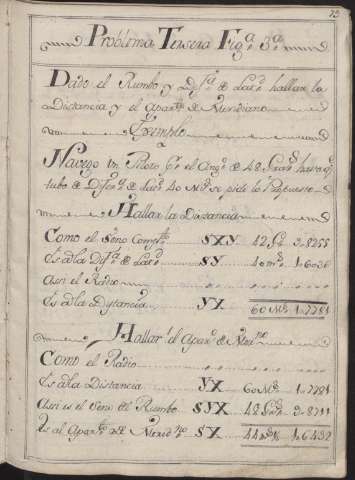 73
Problema Tersera Fig.ª 3.ª
Dado el Rumbo y Dif.ª de Lat.d hallar la
Distancia y el Apart.º de Meridiano
Exemplo
Navego un Piloto p.r el Ang.º de 48 Grad.s hasta q.e
tubo de Difer.ª de Lat.d 40 M.s se pide lo Propuesto
Hallar la Distancia
Como el Seno Comp.to SXY 42 G.s 9.8255
Es a la Dif.ª de Lat.d SY 40 m.s 1.6020
Assi el Radio
Es a la Dystancia YX 60 M.s 1.7781
Hallar el Apar.º de Meri.no
Como el Radio
Es a la Distancia YX 60 M.s 1.7781
Assi es el Seno del Rumbo SYX 48 G.s 9.8711
Es al Apart.º de Merid.no SX 44 M.s 1.6492